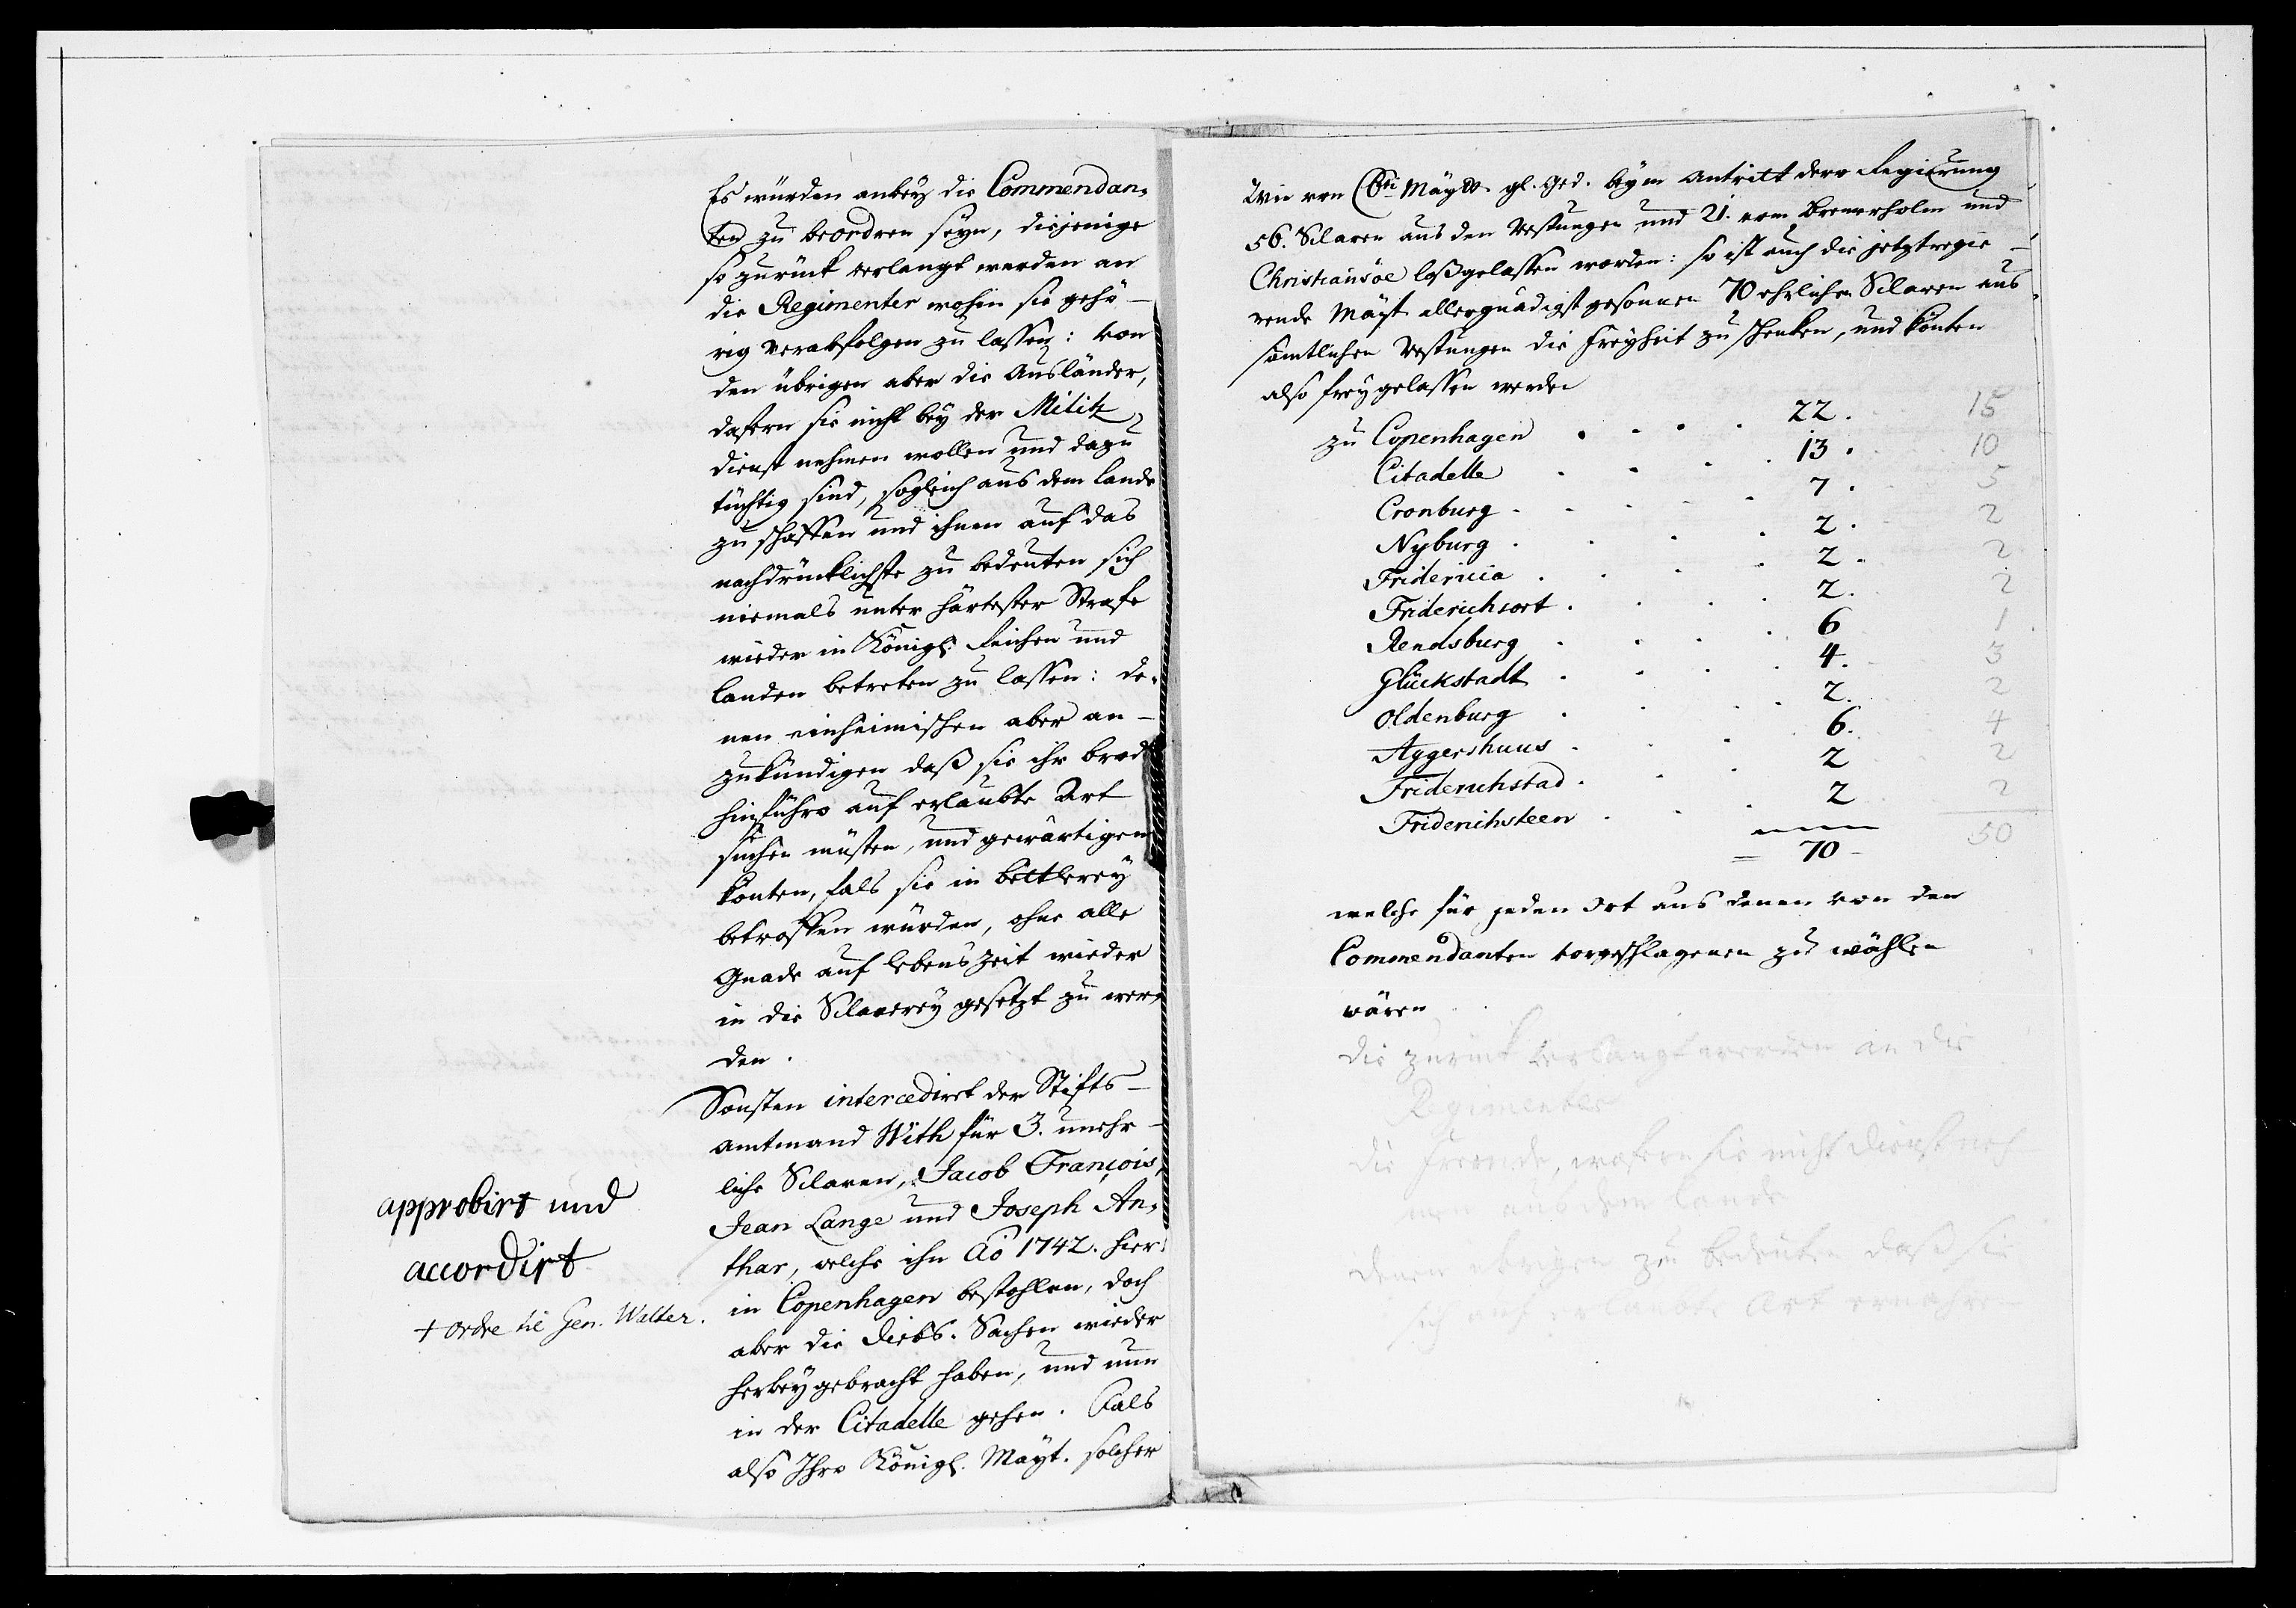 Es würden anbey die Commendan-
ten zu beordren seyn, diejenige
so zurück verlangt werden an
die Regimenter wohin sie gehö-
rig verabfolgen zu lassen: von
den übrigen aber die Ausländer,
dafern sie nicht bey der Militz
dienst nehmen wollen und dazu
tüchtig sind, sogleich aus dem Lande
zu schaffen und ihnen auf das
nachdrücklichste zu bedeuten sich
niemals unter härtester Strafe
wieder in Königl. Reichen und
Landen betreten zu lassen: de-
nen einheimischen aber an-
zukündigen daß sie ihr brod
hinführo auf erlaubte Art
suchen müsten, und gewärtigen
konten, fals sie in bettlerey
betroffen würden, ohne alle
Gnade auf lebenszeit wieder
in die Sclaverey gesetzt zu wer-
den.
Sonsten intercedirt der Stifts-
amtmand With für 3. unehr-
liche Sclaven, Jacob François,
Jean Lange und Joseph An-
thar, welche ihn Aö 1742. hier
in Copenhagen bestohlen, doch
aber die diebs-Sachen wieder
herbeygebracht haben, und nun
in der Citadelle gehen. Fals
also Ihro Königl. Mayt. solcher
approbirt und
accordirt
+ ordre til Gen. Walter.
Wie von Chri Mayt. gl. Ged. beym Antritt dero Regierung
56. Sclaven aus den Vestungen und 21. vom Bremerholm und
Christiansöe loßgelassen worden: so ist auch die jetztregie-
rende Mayt allergnädigst gesonnen 70 ehrlichen Sclaven aus
sämtlichen Vestungen die Freyheit zu schenken, und konten
also frey gelassen werden
zu Copenhagen . . . . 22. 15
Citadelle . . . . 13. 10
Cronburg . . . . 7. 5
Nyburg . . . . 2. 2
Fridericia . . . . 2. 2
Friderichsort . . . . 2. 2
Rendsburg . . . . 6 1
Glückstadt . . . . 4. 3
Oldenburg . . . . 2. 2
Aggershuus . . . . 6. 4
Friderichstad . . . . 2 2
Friderichsteen . . . . 2 2
= 70 - 50
welche für jeden Ort aus denen von den
Commendanten vorgeschlagenen zu wählen
wären
die zurück verlangt werden an die
Regimenter
die Fremde, wofern sie nicht dienst neh
men aus dem Lande
denen übrigen zu bedeuten daß sie
sich auf erlaubte Art ernehren